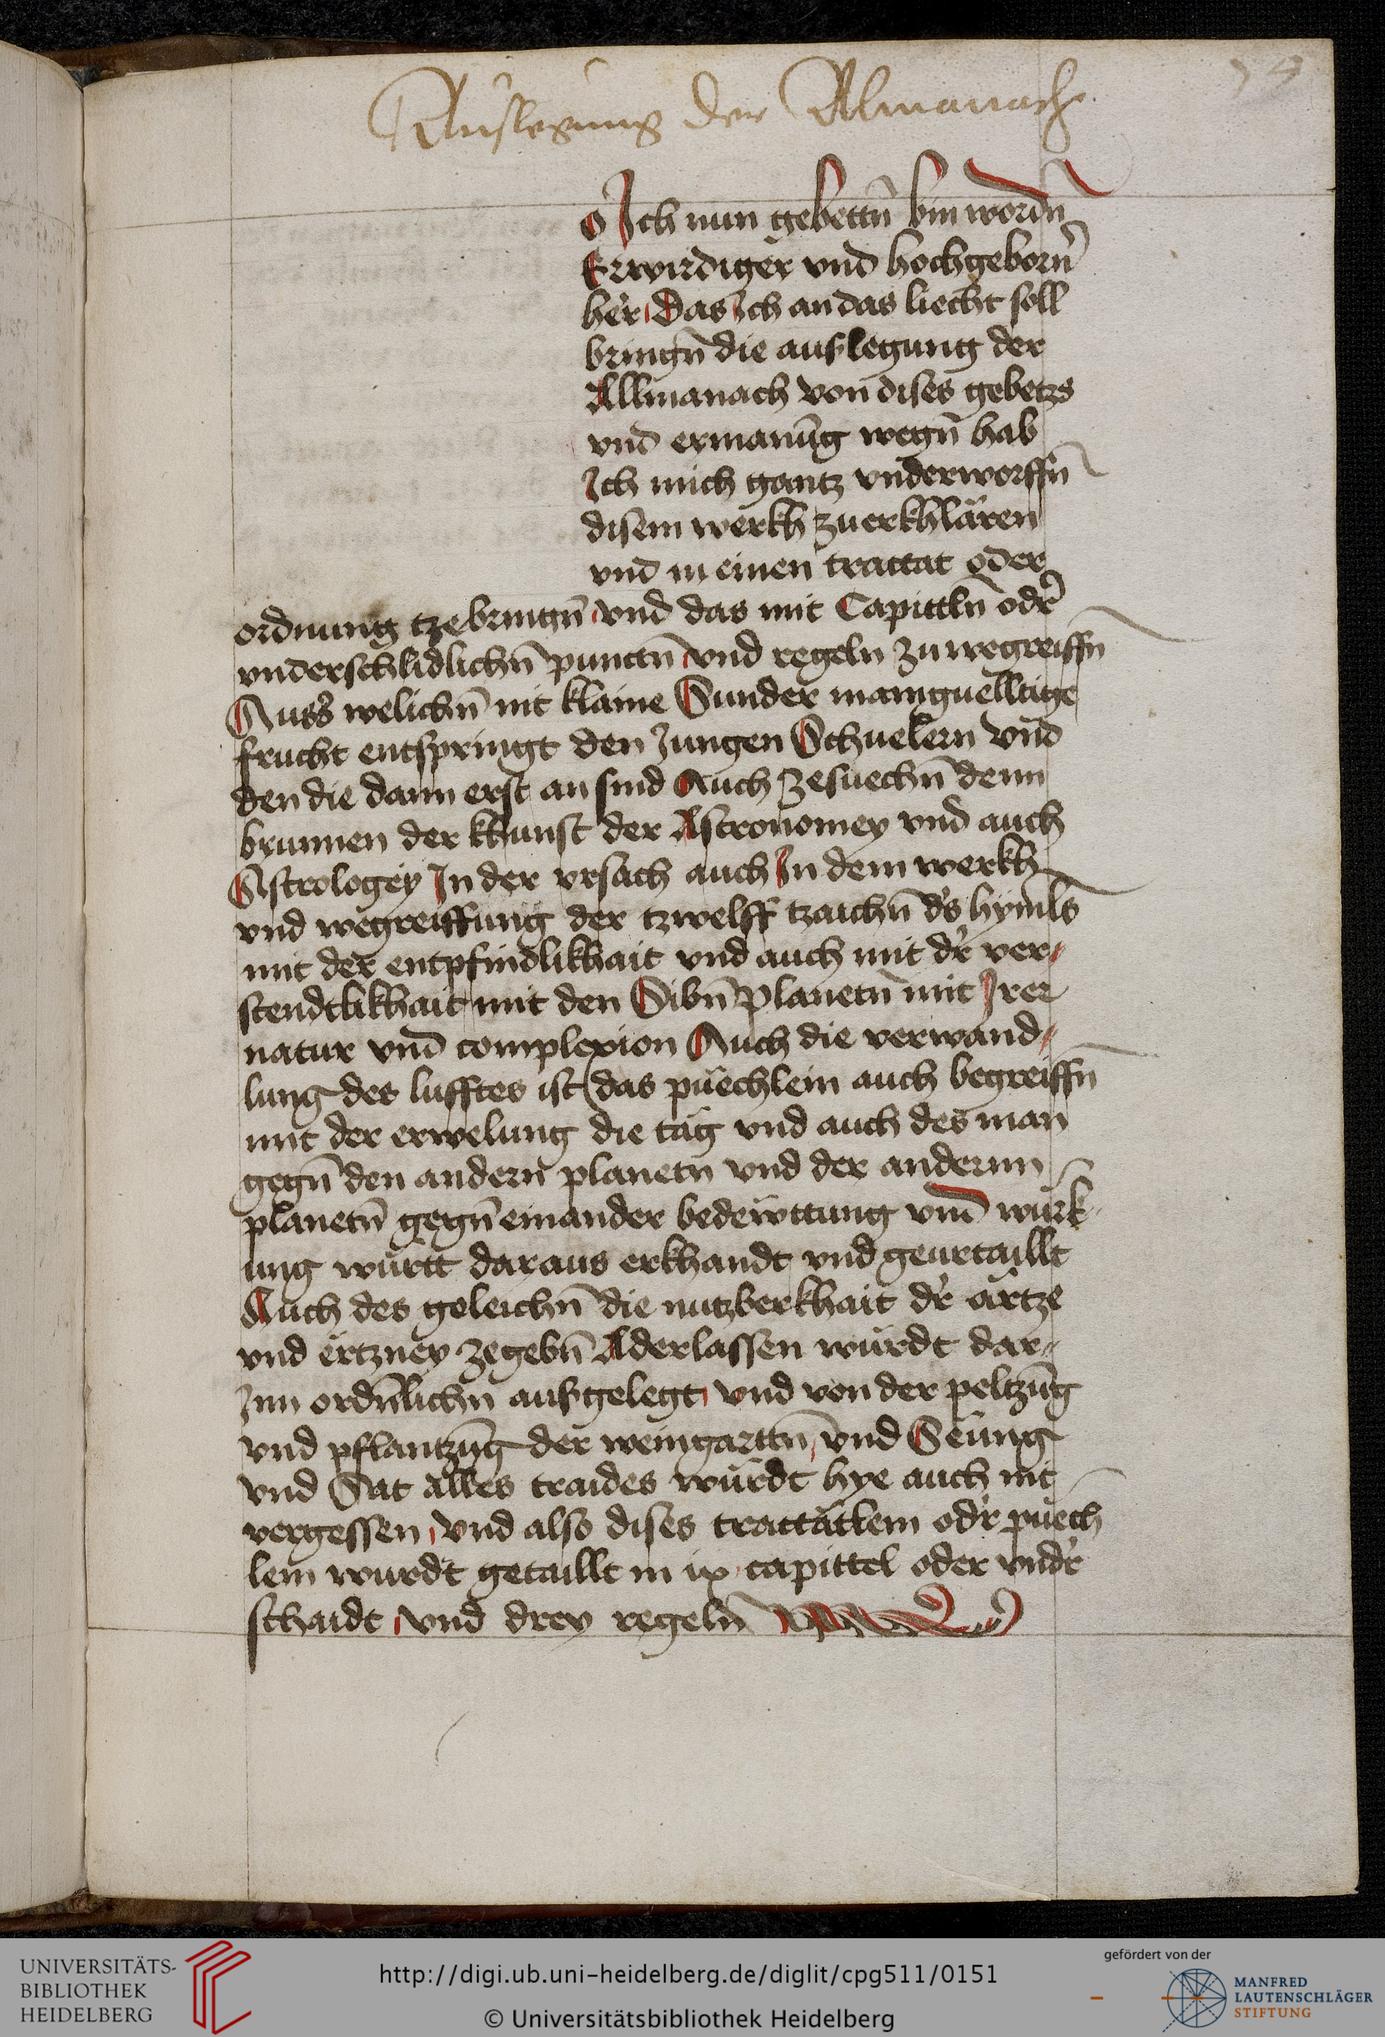 Auslegung der Almanach
74
o Ich nun gebettn̄ bin wordn̄
Erwirdiger vnd hochgeborn̄
her Das Ich an das liecht soll
bringn̄ die auslegung der
Allmanach von dises gebetzs
vnd ermanūg wegn̄ hab
Ich mich gantz vnderworffn̄
disem werkh zuerkhlären
vnd in einen tractat oder
ordnung tzebringn̄ vnd das mit Capittln̄ odr̄
vnderschidlichn̄ punctn̄ vnd regeln zuwegreiffn̄
Auss welichn̄ nit klaine Sunder maniguelltige
frucht entspringt den Jungen Schuelern vnd
den die dann erst an sind Auch zesuechn̄ denn
brunnen der khunst der Astronomey vnd auch
Astrologey In der vrsach auch In dem werkh
vnd wegreiffung der tzwelff tzaichn̄ ds hymls
mit der entpfindlikhait vnd auch mit dr̄ ver-
stendtlikhait mit den Sibn̄ Planetn̄ mit Irer
natur vnd complexion Auch die verwand-
lung des lufftes ist das püechlein auch begreiffn̄
mit der erwelung die täg vnd auch des man
gegn̄ den andern planetn vnd der anderrn
planetn̄ gegn̄ einander bedewttung vnd würk-
ung württ daraus erkhandt vnd geurtaillt
Auch des geleichn̄ die nutzberkhait dr̄ ärtze
vnd ërtzney zegebn̄ Aderlassen würdt dar-
Inn ordn̄lichn ausgelegt vnd von der peltzūg
vnd pflantzūg der weingarttn̄ vnd Seüng
vnd Sat alles traides würdt hye auch nit
vergessen vnd also dises tractätlein odr̄ püech
lein wurdt getaillt in ix capittel oder vndr̄
schaidt vnd drey regeln̄
UNIVERSITÄTS-
BIBLIOTHEK
HEIDELBERG
http://digi.ub.uni-heidelberg.de/diglit/cpg511/0151
© Universitätsbibliothek Heidelberg
gefördert von der
MANFRED
LAUTENSCHLÄGER
STIFTUNG